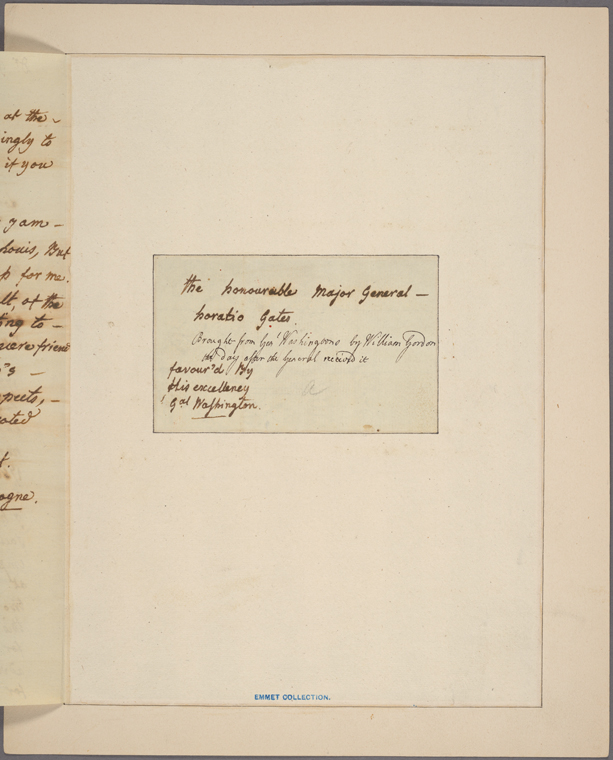 at the -
ingly to
it you
yam -
louis, But
p for me.
lt, at the
ting to -
ncere friend
's -
pects, -
ated
t.
ogne.
the honourable Major General -
horatio Gates
Brought from Gen.l Washingtons by William Gordon
the day after the General received it
favour'd By
His excellency
G.al Washington.
a
EMMET COLLECTION.